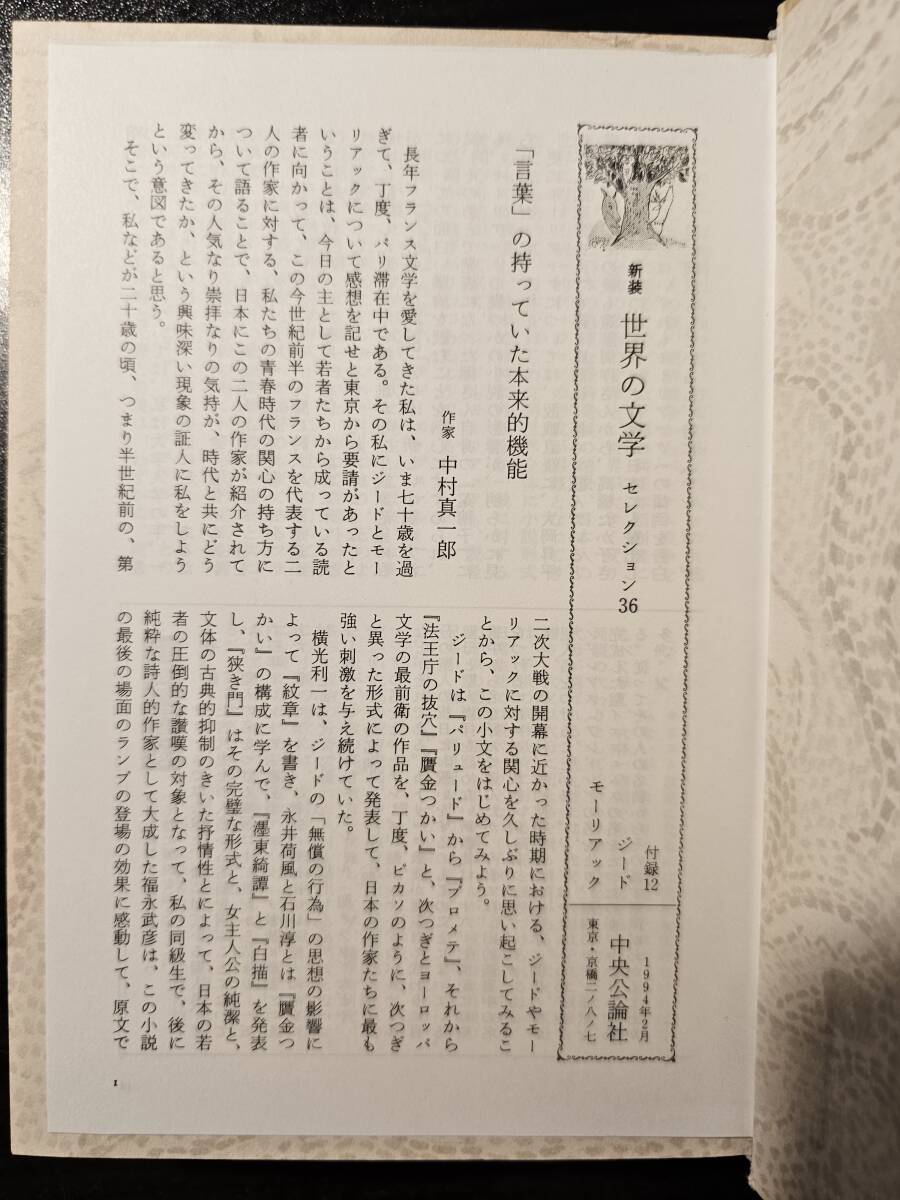 新装 世界の文学 セレクション36
ジード
モーリアック
付録12
1994年2月
中央公論社
東京・京橋二ノ八ノ七
「言葉」の持っていた本来的機能
作家 中村真一郎
長年フランス文学を愛してきた私は、いま七十歳を過
ぎて、丁度、パリ滞在中である。その私にジードとモー
リアックについて感想を記せと東京から要請があったと
いうことは、今日の主として若者たちから成っている読
者に向かって、この今世紀前半のフランスを代表する二
人の作家に対する、私たちの青春時代の関心の持ち方に
ついて語ることで、日本にこの二人の作家が紹介されて
から、その人気なり崇拝なりの気持が、時代と共にどう
変ってきたか、という興味深い現象の証人に私をしよう
という意図であると思う。
そこで、私などが二十歳の頃、つまり半世紀前の、第
二次大戦の開幕に近かった時期における、ジードやモー
リアックに対する関心を久しぶりに思い起こしてみるこ
とから、この小文をはじめてみよう。
ジードは『パリュード』から『プロメテ』、それから
『法王庁の抜穴』『贋金つかい』と、次つぎとヨーロッパ
文学の最前衛の作品を、丁度、ピカソのように、次つぎ
と異った形式によって発表して、日本の作家たちに最も
強い刺激を与え続けていた。
横光利一は、ジードの「無償の行為」の思想の影響に
よって『紋章』を書き、永井荷風と石川淳とは『贋金つ
かい』の構成に学んで、『濹東綺譚』と『白描』を発表
し、『狭き門』はその完璧な形式と、女主人公の純潔と、
文体の古典的抑制のきいた抒情性とによって、日本の若
者の圧倒的な讃嘆の対象となって、私の同級生で、後に
純粋な詩人的作家として大成した福永武彦は、この小説
の最後の場面のランプの登場の効果に感動して、原文で
1